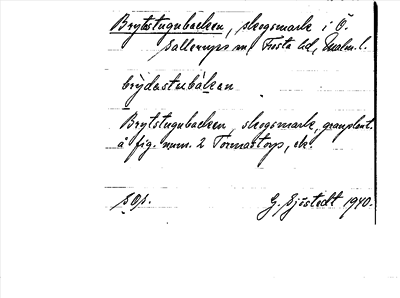 Brytstugubacken, skogsmark i Ö.
Sallerups sn, Frosta hd, Malm. l.
brỳdastubàkan
Brytstugubacken, skogsmark, granplant.
å fig. num. 2 Tormastorp, ek.
SOs.
G. Sjöstedt 1940.